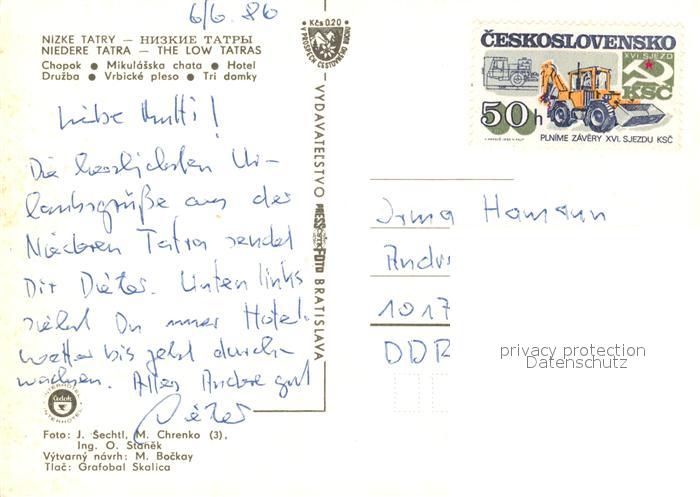 6/6. 86
NÍZKE TATRY — НИЗКИЕ ТАТРЫ
NIEDERE TATRA — THE LOW TATRAS
Chopok ● Mikulášska chata ● Hotel
Družba ● Vrbické pleso ● Tri domky
Kčs 0.20
V PROSPECH CESTOVNÉHO RUCHU
Liebe Mutti!
Die herzlichsten Ur-
laubsgrüße aus der
Niederen Tatra sendet
Dir Dieter. Unten links
siehst Du unser Hotel.
Wetter bis jetzt durch-
wachsen. Alles Andere gut
Dieter
VYDAVATEĽSTVO PRESSFOTO BRATISLAVA
INTERHOTEL
Čedok
INTERHOTEL
Foto: J. Šechtl, M. Chrenko (3),
Ing. O. Staněk
Výtvarný návrh: M. Bočkay
Tlač: Grafobal Skalica
ČESKOSLOVENSKO
XVI. SJEZD
KSČ
50h
PLNÍME ZÁVĚRY XVI. SJEZDU KSČ
Irma Hamann
Andr
1017
DDR
privacy protection
Datenschutz